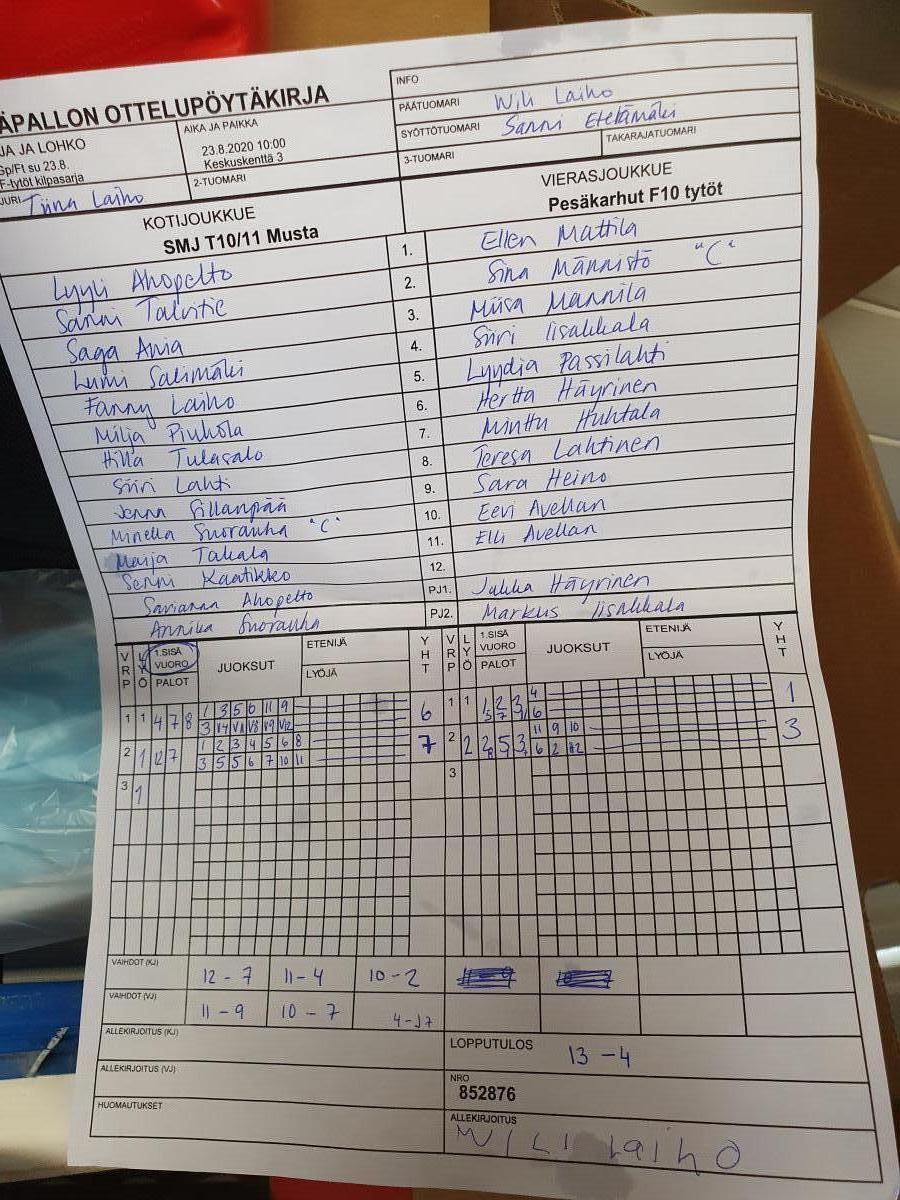 ÄPALLON OTTELUPÖYTÄKIRJA
INFO
PÄÄTUOMARI Wili Laiho
SYÖTTÖTUOMARI Sanni Etelämäki
3-TUOMARI
TAKARAJATUOMARI
JA JA LOHKO
AIKA JA PAIKKA
Gp/Ft su 23.8.
F-tytöt kilpasarja
23.8.2020 10:00
Keskuskenttä 3
2-TUOMARI
JURI Tiina Laiho
KOTIJOUKKUE
SMJ T10/11 Musta
VIERASJOUKKUE
Pesäkarhut F10 tytöt
Lyyli Ahopelto 1. Ellen Mattila
Sanni Talvitie 2. Sina Männistö "C"
Saga Ania 3. Miisa Mannila
Lumi Salimäki 4. Siiri Iisakkala
Fanny Laiho 5. Lyydia Passilahti
Milja Piuhola 6. Hertta Häyrinen
Hilla Tulasalo 7. Minttu Huhtala
Siiri Lahti 8. Teresa Lahtinen
Jenna Sillanpää 9. Sara Heino
Minella Suorauha "C" 10. Eevi Avellan
Maija Takala 11. Elli Avellan
Senni Kaatikko 12.
Sarianna Ahopelto PJ1. Jukka Häyrinen
Annika Suorauha PJ2. Markus Iisakkala
VRP LYÖ 1.SISÄ VUORO PALOT JUOKSUT ETENIJÄ LYÖJÄ YHT
VRP LYÖ 1.SISÄ VUORO PALOT JUOKSUT ETENIJÄ LYÖJÄ YHT
1 1 4 7 8 1 3 5 6 11 9 6
3 V4 V1 V8 V9 V12
2 1 12 7 1 2 3 4 5 6 8 7
3 5 5 6 7 10 11
3 1
1 1 1 2 3 4 1
6
2 2 2 5 3 11 9 10 3
6 2 12
3
VAIHDOT (KJ) 12 - 7 11 - 4 10 - 2
VAIHDOT (VJ) 11 - 9 10 - 7
ALLEKIRJOITUS (KJ)
LOPPUTULOS 13 - 4
ALLEKIRJOITUS (VJ)
NRO
852876
HUOMAUTUKSET
ALLEKIRJOITUS
WILI Laiho